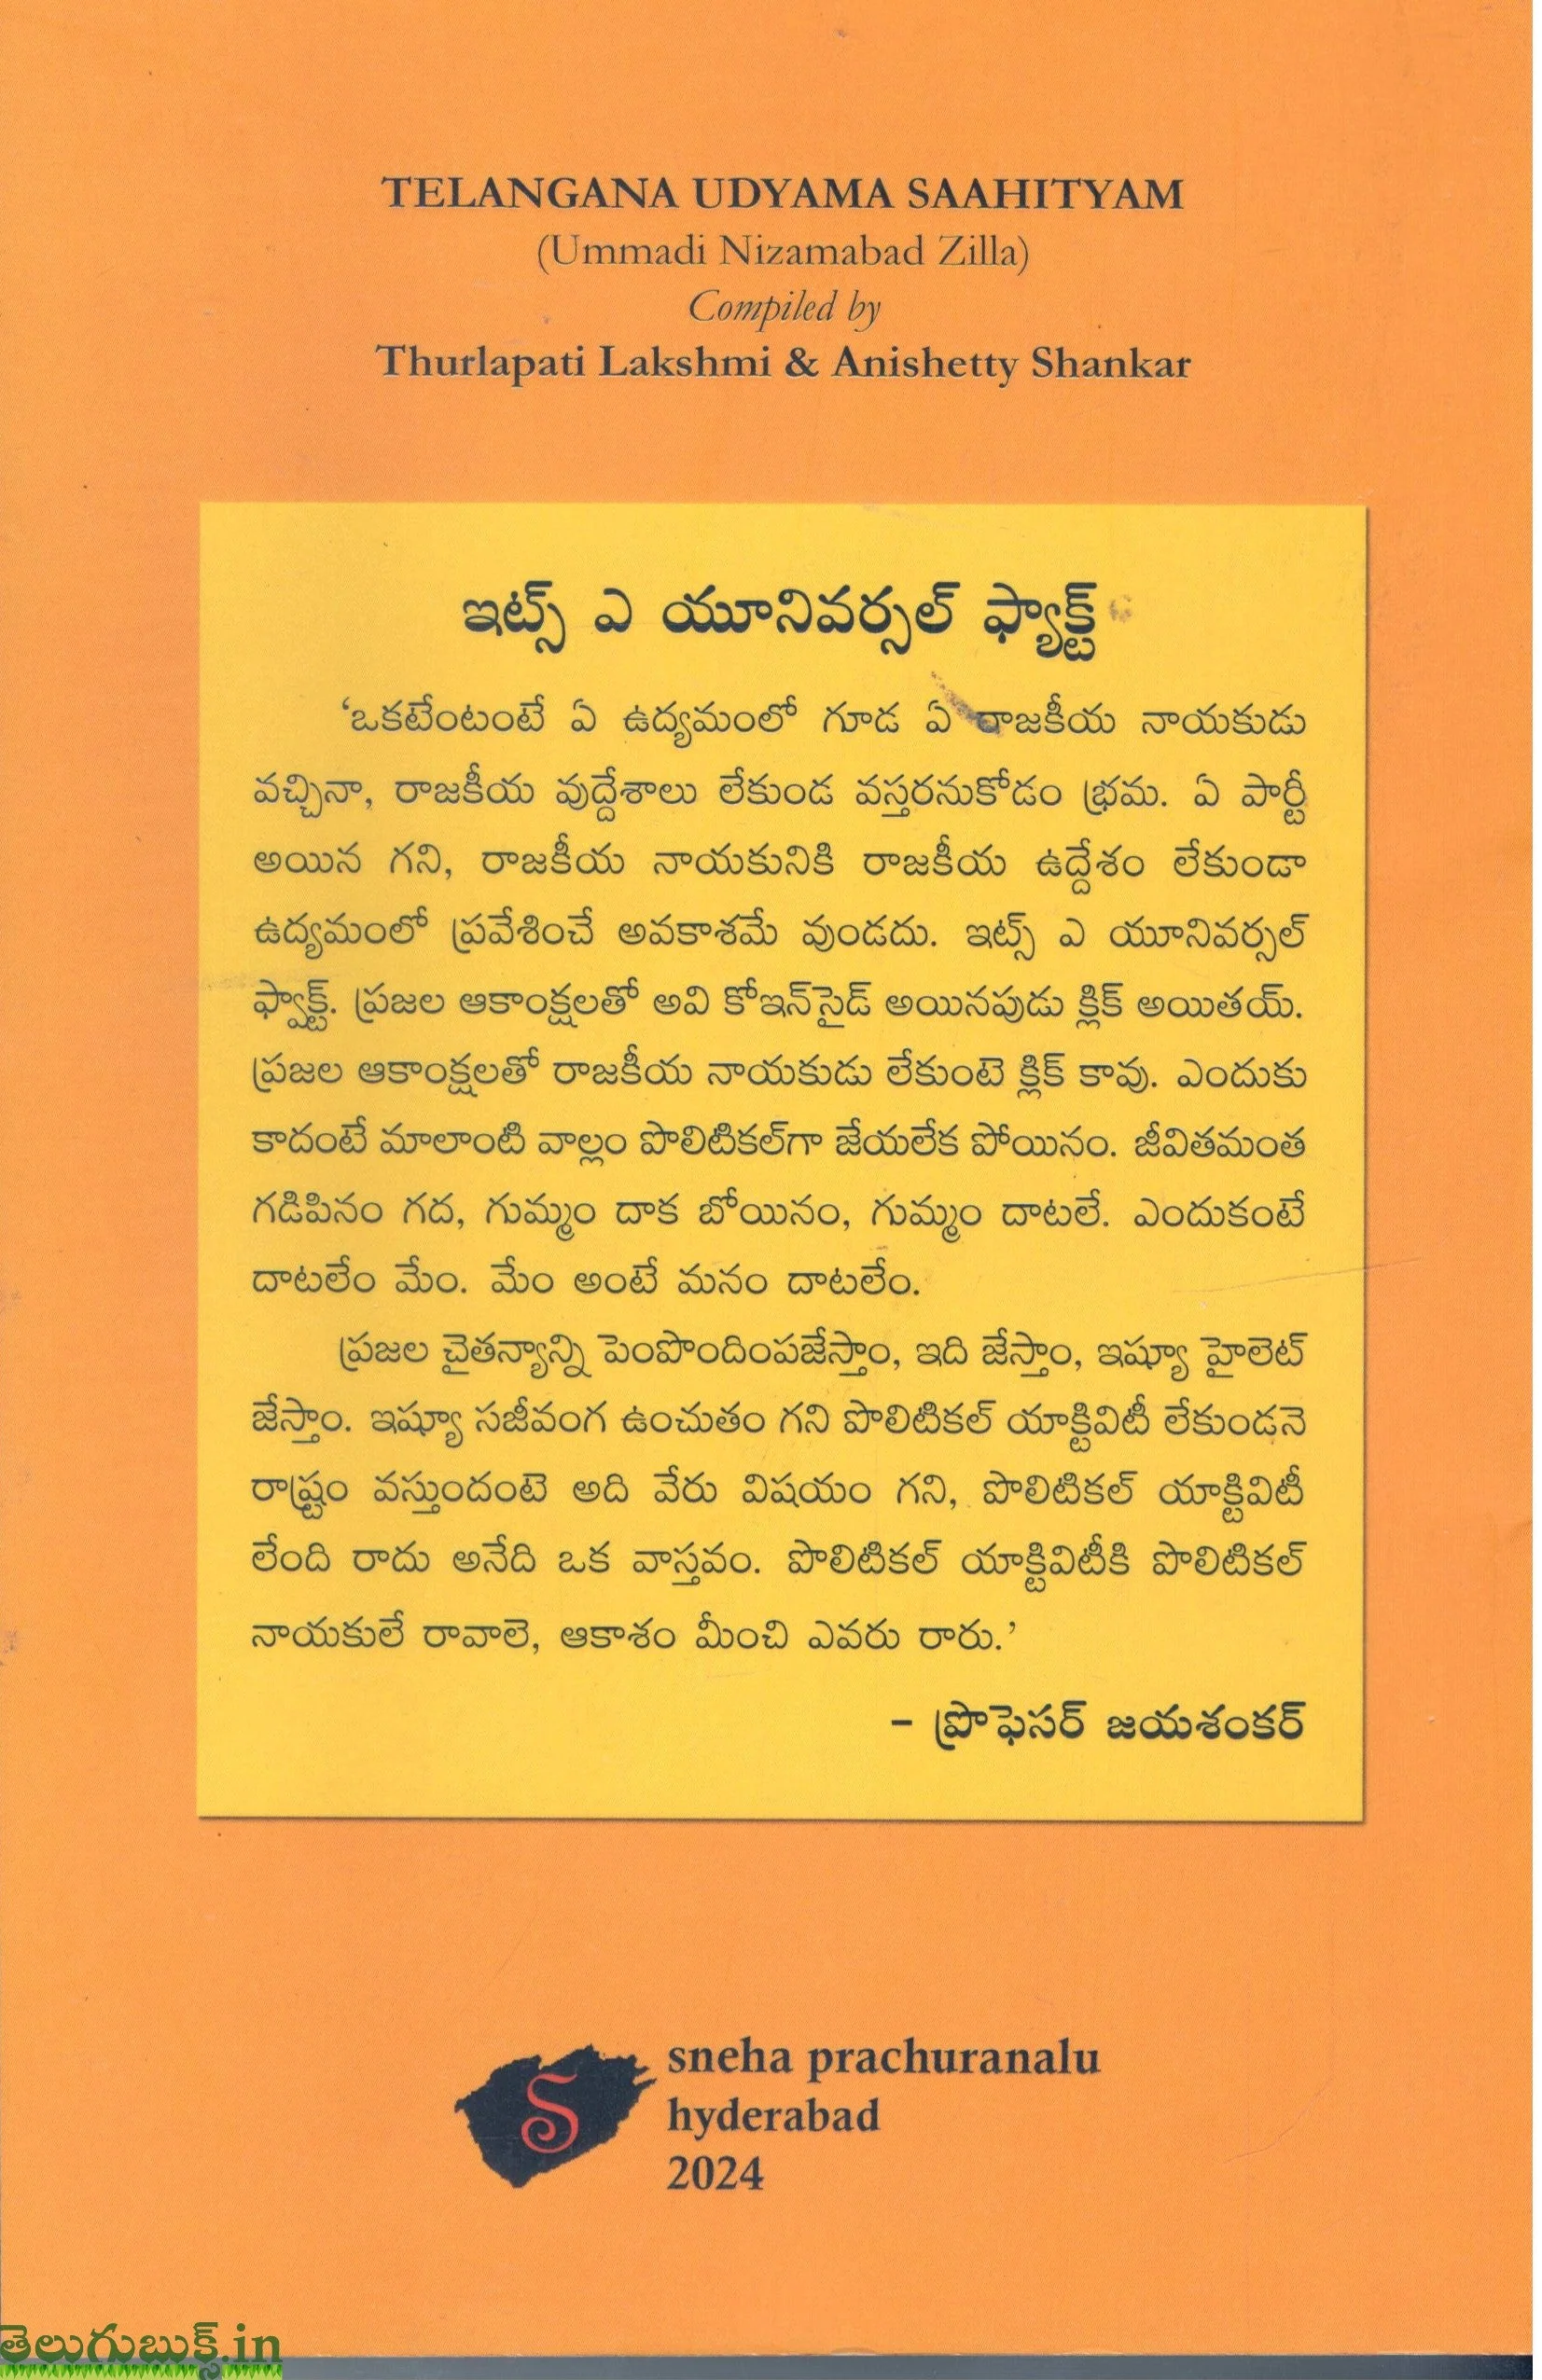 TELANGANA UDYAMA SAAHITYAM
(Ummadi Nizamabad Zilla)
Compiled by
Thurlapati Lakshmi & Anishetty Shankar
ఇట్స్ ఎ యూనివర్సల్ ఫ్యాక్ట్
‘ఒకటేంటంటే ఏ ఉద్యమంలో గూడ ఏ రాజకీయ నాయకుడు
వచ్చినా, రాజకీయ వుద్దేశాలు లేకుండ వస్తరనుకోడం భ్రమ. ఏ పార్టీ
అయిన గని, రాజకీయ నాయకునికి రాజకీయ ఉద్దేశం లేకుండా
ఉద్యమంలో ప్రవేశించే అవకాశమే వుండదు. ఇట్స్ ఎ యూనివర్సల్
ఫ్యాక్ట్. ప్రజల ఆకాంక్షలతో అవి కోఇన్‌సైడ్ అయినపుడు క్లిక్ అయితయ్.
ప్రజల ఆకాంక్షలతో రాజకీయ నాయకుడు లేకుంటె క్లిక్ కావు. ఎందుకు
కాదంటే మాలాంటి వాల్లం పొలిటికల్‌గా జేయలేక పోయినం. జీవితమంత
గడిపినం గద, గుమ్మం దాక బోయినం, గుమ్మం దాటలే. ఎందుకంటే
దాటలేం మేం. మేం అంటే మనం దాటలేం.
ప్రజల చైతన్యాన్ని పెంపొందింపజేస్తాం, ఇది జేస్తాం, ఇష్యూ హైలెట్
జేస్తాం. ఇష్యూ సజీవంగ ఉంచుతం గని పొలిటికల్ యాక్టివిటీ లేకుండనె
రాష్ట్రం వస్తుందంటె అది వేరు విషయం గని, పొలిటికల్ యాక్టివిటీ
లేంది రాదు అనేది ఒక వాస్తవం. పొలిటికల్ యాక్టివిటీకి పొలిటికల్
నాయకులే రావాలె, ఆకాశం మీంచి ఎవరు రారు.’
– ప్రొఫెసర్ జయశంకర్
S
sneha prachuranalu
hyderabad
2024
తెలుగుబుక్స్.in